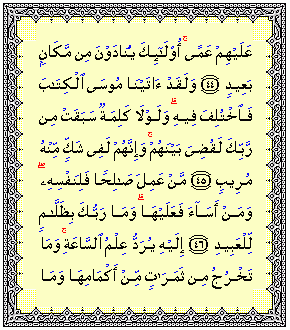 عَلَيْهِمْ عَمًى ۚ أُو۟لَـٰٓئِكَ يُنَادَوْنَ مِن مَّكَانٍۭ
بَعِيدٍ ﴿٤٤﴾ وَلَقَدْ ءَاتَيْنَا مُوسَى ٱلْكِتَـٰبَ
فَٱخْتُلِفَ فِيهِ ۗ وَلَوْلَا كَلِمَةٌ سَبَقَتْ مِن
رَّبِّكَ لَقُضِىَ بَيْنَهُمْ ۚ وَإِنَّهُمْ لَفِى شَكٍّ مِّنْهُ
مُرِيبٍ ﴿٤٥﴾ مَّنْ عَمِلَ صَـٰلِحًا فَلِنَفْسِهِۦ ۖ
وَمَنْ أَسَآءَ فَعَلَيْهَا ۗ وَمَا رَبُّكَ بِظَلَّـٰمٍ
لِّلْعَبِيدِ ﴿٤٦﴾ إِلَيْهِ يُرَدُّ عِلْمُ ٱلسَّاعَةِ ۚ وَمَا
تَخْرُجُ مِن ثَمَرَٰتٍ مِّنْ أَكْمَامِهَا وَمَا